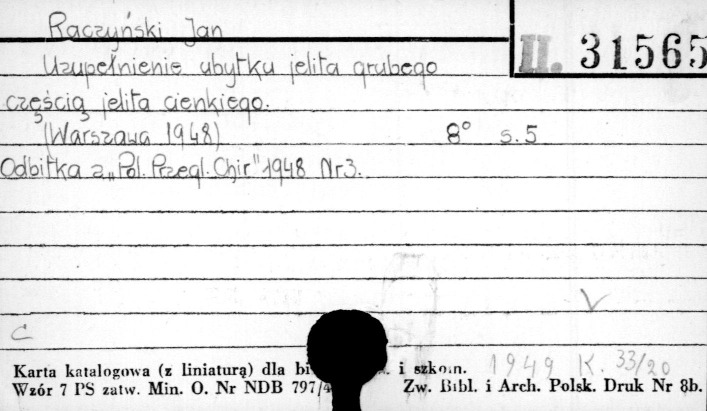 Raczyński Jan
II. 31565
Uzupełnienie ubytku jelita grubego
częścią jelita cienkiego.
(Warszawa 1948) 8° s.5
Odbitka z „Pol. Przegl. Chir" 1948 Nr 3.
V
C
Karta katalogowa (z liniaturą) dla i szkoln. 1949 K. 33/20
Wzór 7 PS zatw. Min. O. Nr NDB 797/4 Zw. Bibl. i Arch. Polsk. Druk Nr 8b.